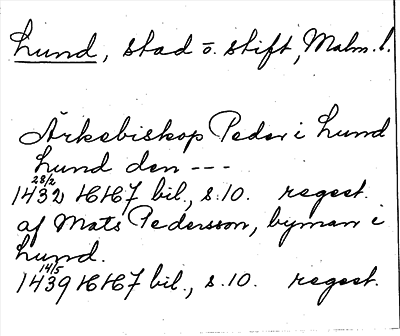 Lund, stad o. stift, Malm. l.
Ärkebiskop Peder i Lund
Lund den ---
28/2
1432 HH7 bil., s. 10. regest.
af Mats Pedersson, byman i
Lund.
14/5
1439 HH7 bil., s. 10. regest.